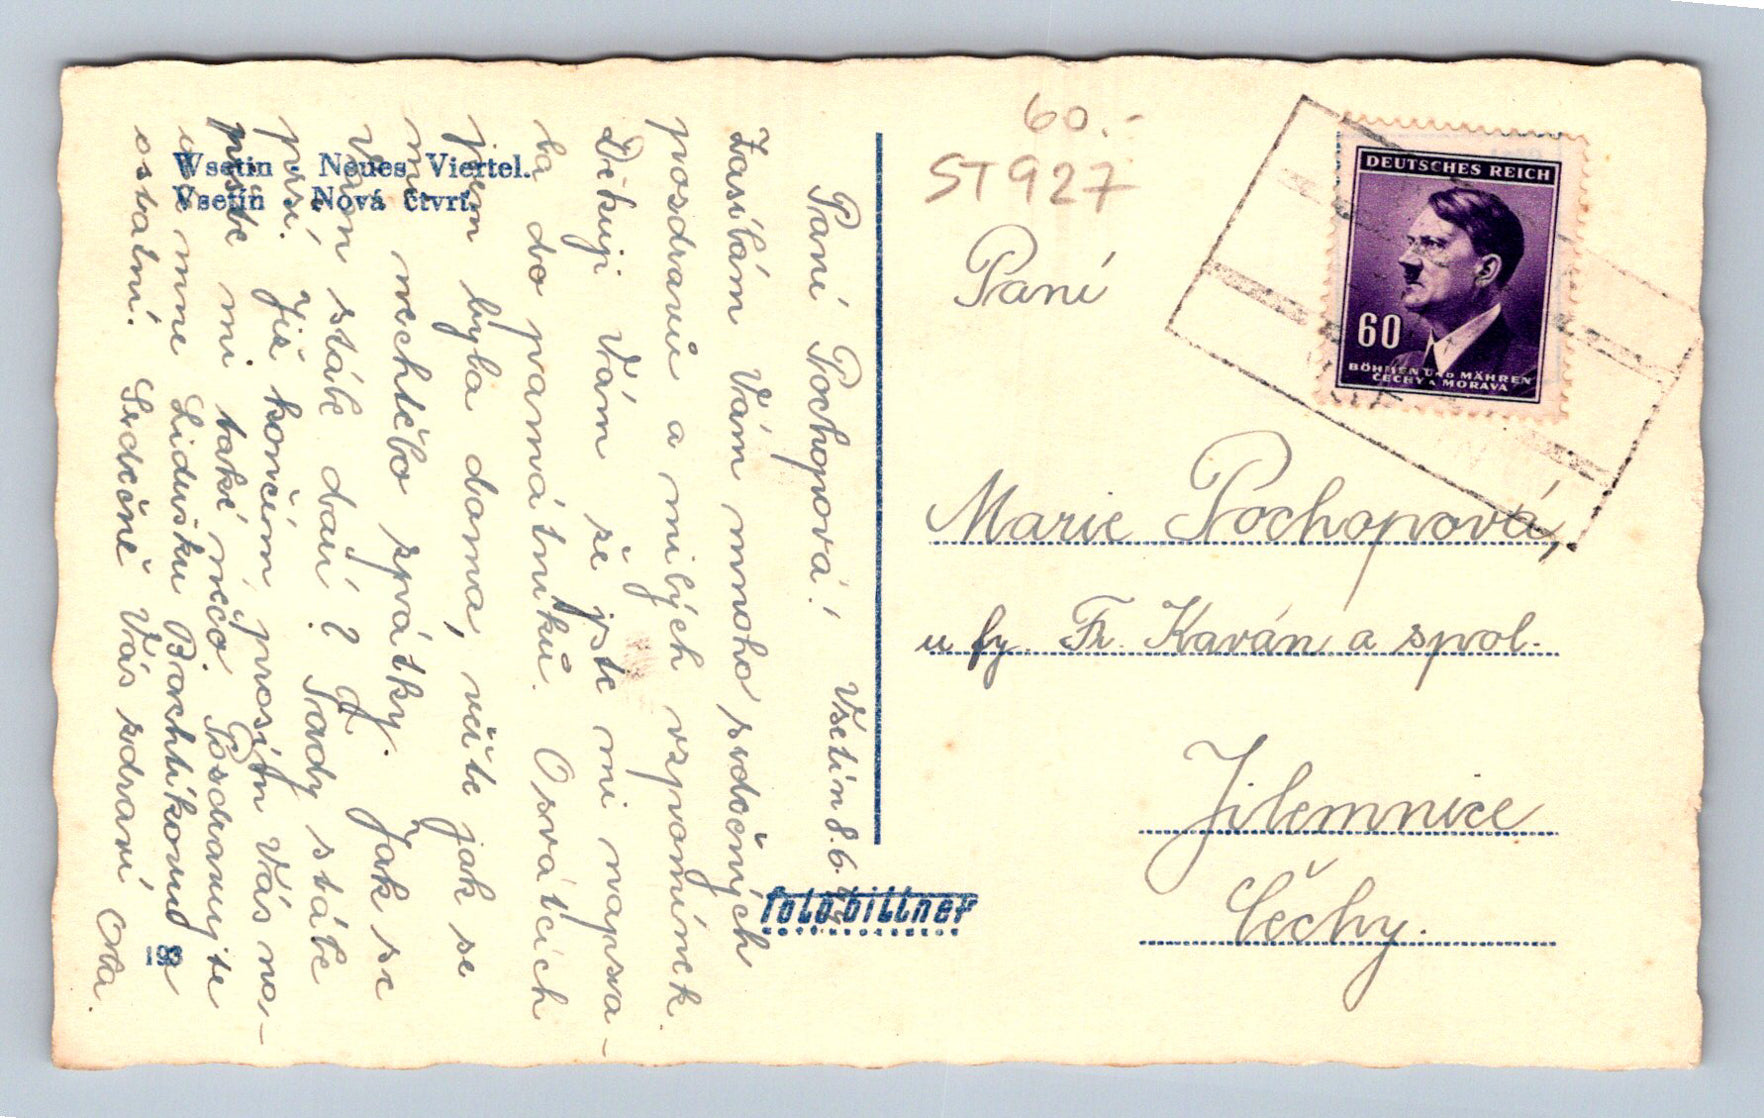 Wsetin - Neues Viertel.
Vsetín - Nová čtvrť.
Paní Pochopová! Vsetín 8.6.
Zasílám Vám mnoho srdečných
pozdravů a milých vzpomínek.
Děkuji Vám že jste mi napsa-
la do památníku. O svátcích
jsem byla doma, víte jak se
mi nechtělo zpátky. Jak se
Vám stále daří? Tady stále
prší. Již končím prosím Vás na-
pište mi také něco. Pozdravujte
ode mne Lidušku Bachtíkovu a
ostatní. Srdečně Vás zdraví
193
fotobittner
60.-
ST927
DEUTSCHES REICH
60
BÖHMEN UND MÄHREN
ČECHY A MORAVA
Paní
Marie Pochopová,
u fy. Fr. Kaván a spol.
Jilemnice
Čechy.